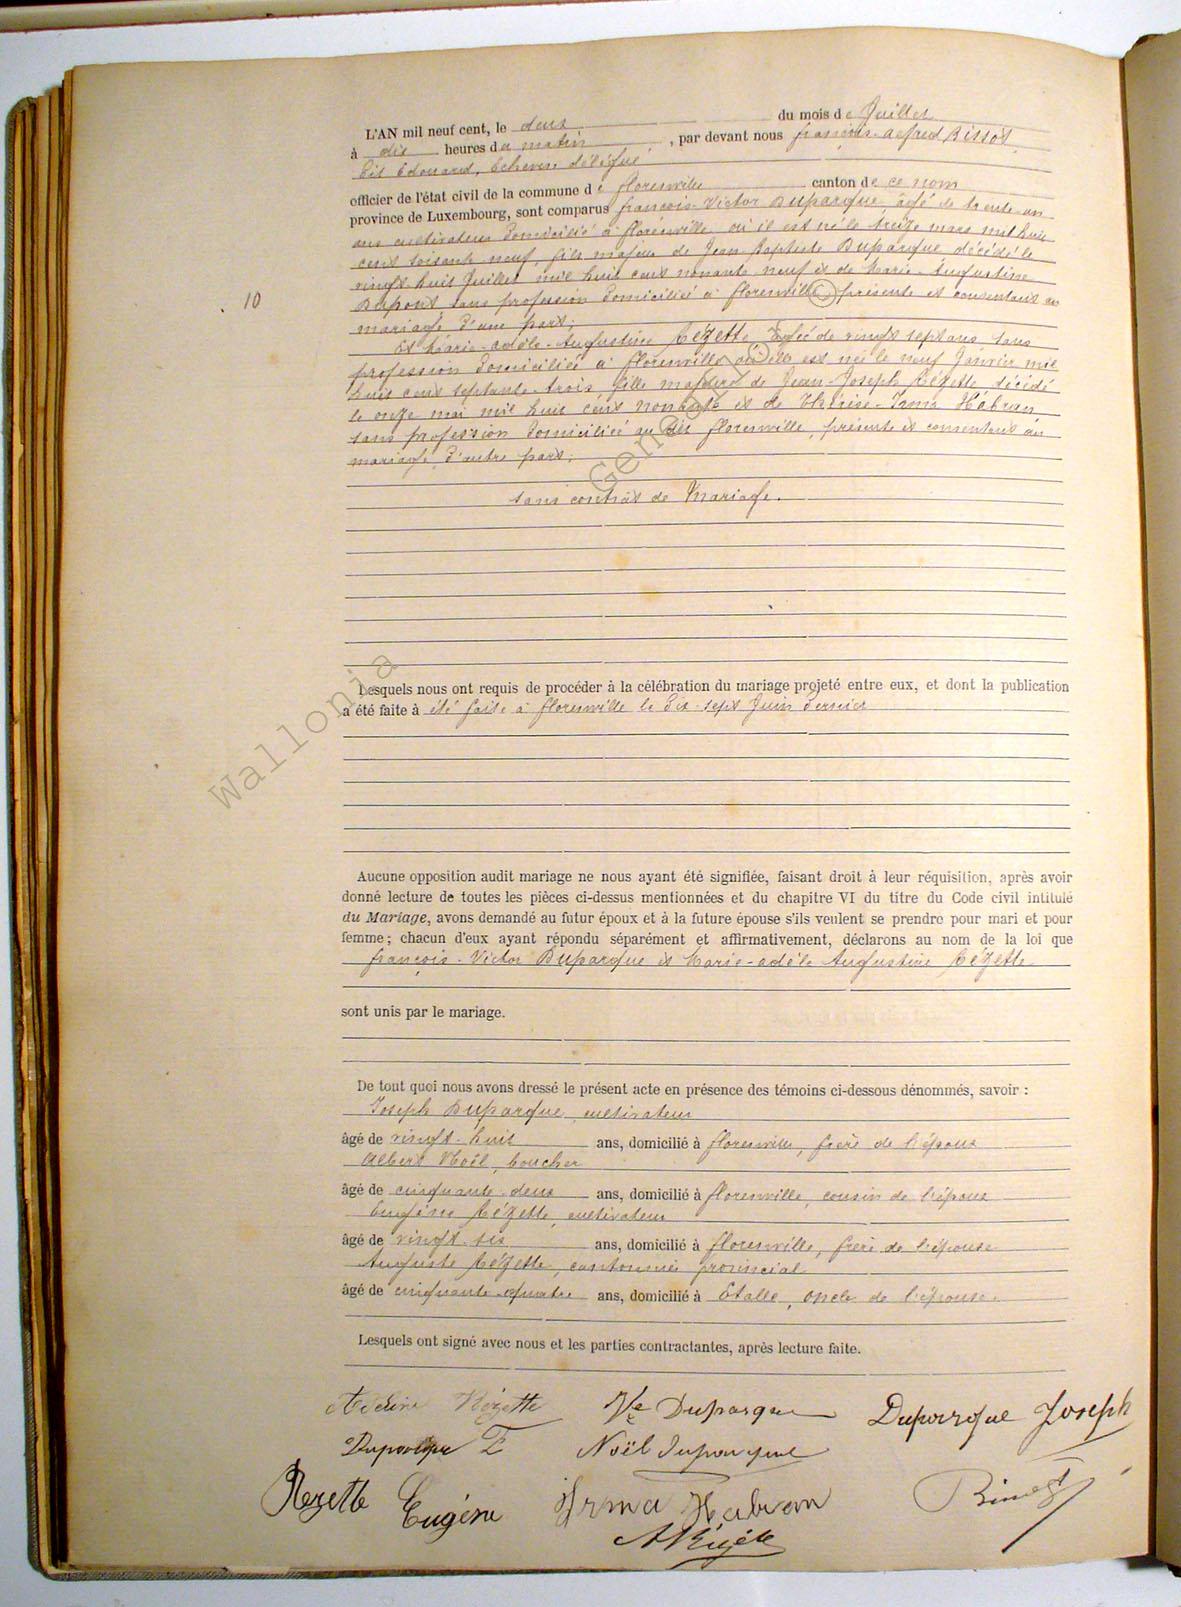 L'AN mil neuf cent, le deux du mois de Juillet
à dix heures du matin, par devant nous françois-alfred
dit Edouard, Echevin délégué
officier de l'état civil de la commune de florenville canton de ce nom
province de Luxembourg, sont comparus françois-Victor Duparque âgé de trente-un
ans cultivateur domicilié à florenville où il est né le treize mars mil huit
cent soixante neuf, fils majeur de Jean Baptiste Duparque décédé le
vingt huit Juillet mil huit cent nonante neuf et de Marie-Augustine
Dupont sans profession domiciliée à florenville présente et consentant au
mariage d'une part;
10
Et Marie-adèle-Augustine Rézette, âgée de vingt sept ans, sans
profession domiciliée à florenville où elle est née le neuf Janvier mil
huit cent septante-trois fille majeure de Jean-Joseph Rézette décédé
le onze mai mil huit cent nonante et de Thérèse-Irma Habran
sans profession domiciliée au dit florenville, présente et consentant au
mariage, d'autre part;
sans contrat de Mariage.
Lesquels nous ont requis de procéder à la célébration du mariage projeté entre eux, et dont la publication
a été faite à été faite à florenville le dix-sept Juin dernier
Aucune opposition audit mariage ne nous ayant été signifiée, faisant droit à leur réquisition, après avoir
donné lecture de toutes les pièces ci-dessus mentionnées et du chapitre VI du titre du Code civil intitulé
du Mariage, avons demandé au futur époux et à la future épouse s'ils veulent se prendre pour mari et pour
femme; chacun d'eux ayant répondu séparément et affirmativement, déclarons au nom de la loi que
françois-Victor Duparque et Marie-adèle Augustine Rézette
sont unis par le mariage.
De tout quoi nous avons dressé le présent acte en présence des témoins ci-dessous dénommés, savoir :
Joseph Duparque, cultivateur
âgé de vingt-huit ans, domicilié à florenville, frère de l'époux
Albert Noël, boucher
âgé de cinquante-deux ans, domicilié à florenville, cousin de l'époux
Eugène Rézette, cultivateur
âgé de vingt-six ans, domicilié à florenville, frère de l'épouse
Auguste Rézette, cantonnier provincial
âgé de cinquante-quatre ans, domicilié à Etalle, oncle de l'épouse.
Lesquels ont signé avec nous et les parties contractantes, après lecture faite.
Rézette Ve Duparque Duparque Joseph
Duparque F Noël Duparque
Rezette Eugène Irma Habran
A Rézette
Wallonia Genealo ©